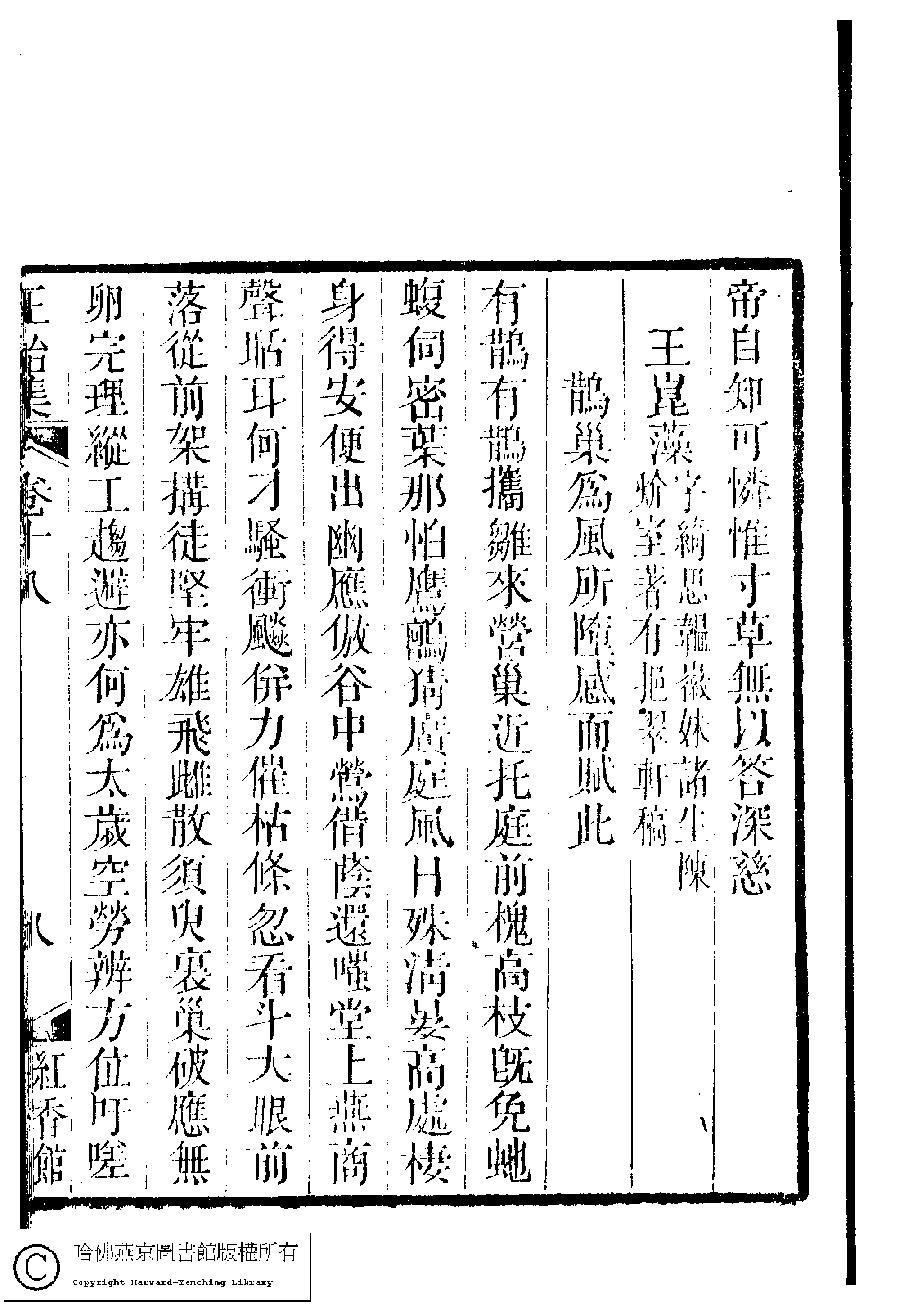 帝自知可憐惟寸草無以答深慈
王崑藻字綺思韞徽妹諸生陳
蚧室著有挹翠軒稿
鵲巢為風所墮感而賦此
有鵲有鵲攜雛來營巢近托庭前槐高枝既免虵
蝮伺密葉那怕鷹鸇猜廣庭風日殊清晏高處棲
身得安便出幽應倣谷中鶯借蔭還嗤堂上燕商
聲聒耳何刁騷衝飈併力催枯條忽看斗大眼前
落從前架搆徒堅牢雄飛雌散須臾裏巢破應無
卵完理縱工趨避亦何為太歲空勞辨方位吁嗟
正始集 卷十八 八 紅香館
哈佛燕京圖書館版權所有
Copyright Harvard-Yenching Library